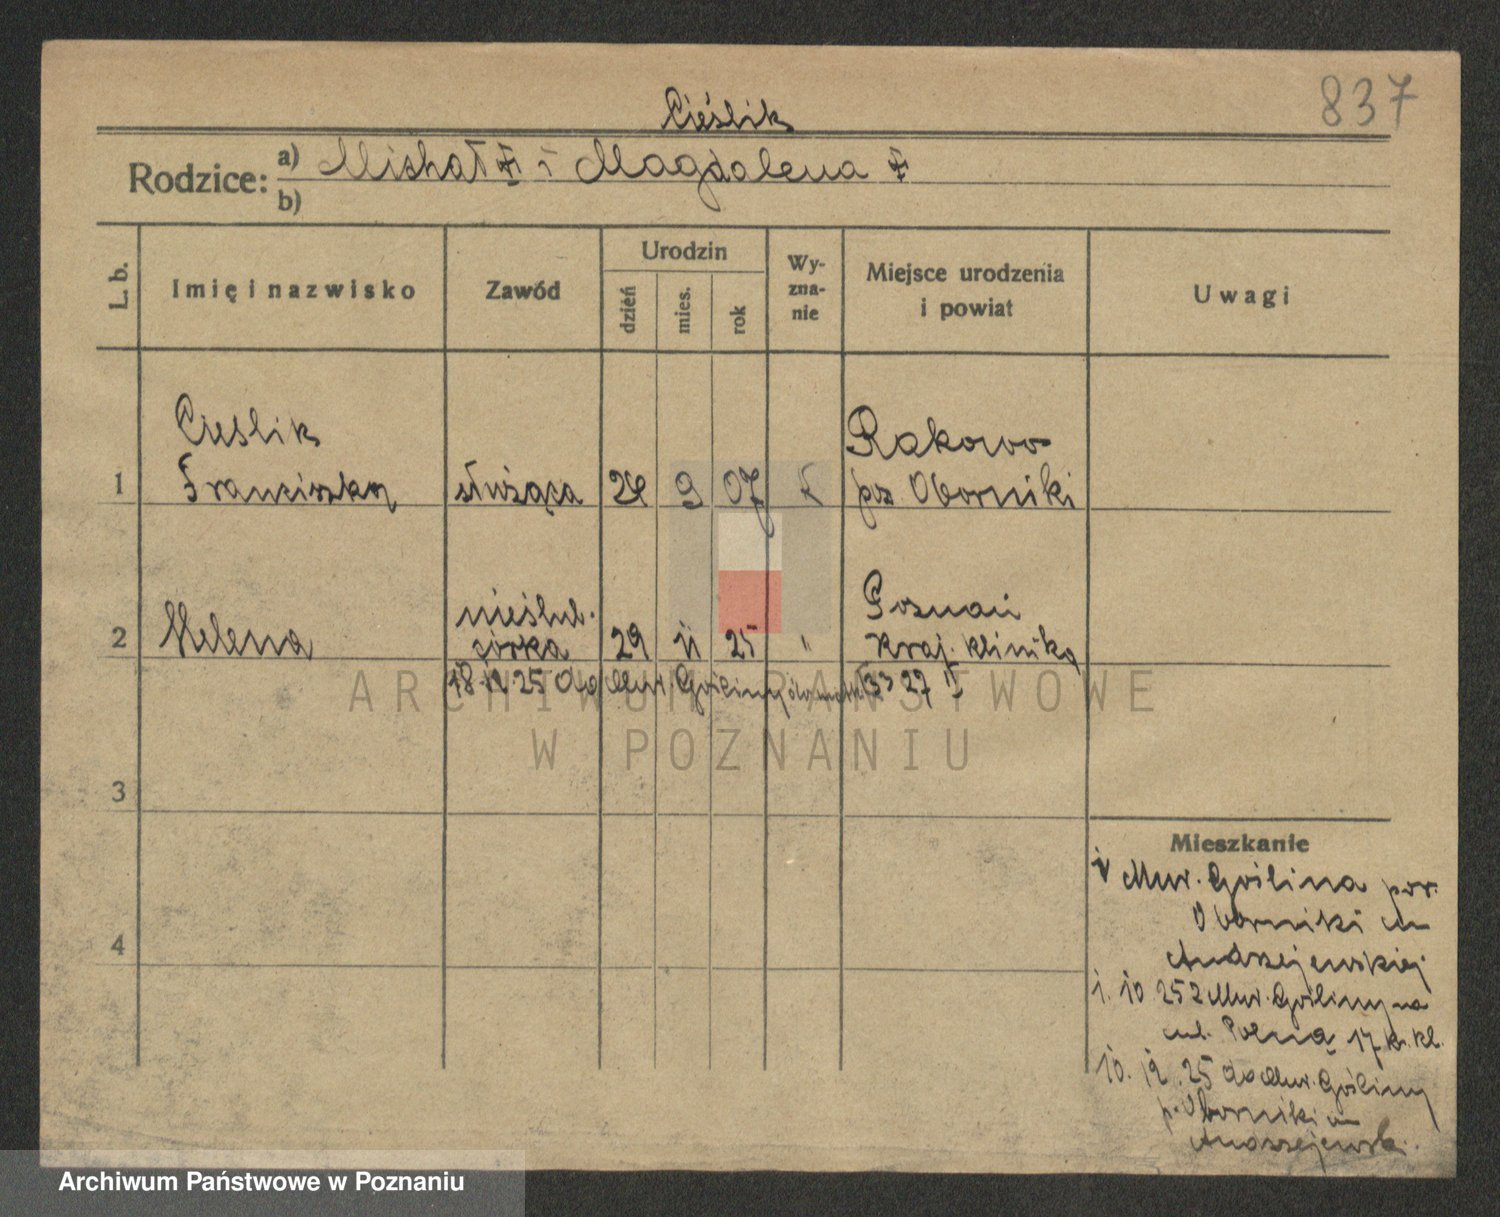 837
Cieślik
Rodzice: a) Michał ‡ i Magdalena ‡
b)
L. b.
Imię i nazwisko
Zawód
Urodzin
dzień
mies.
rok
Wy-
zna-
nie
Miejsce urodzenia
i powiat
Uwagi
Cieslik
1 Franciszka służąca 24 9 07 k
Rakowo
pow. Oborniki
2 Helena
nieślub.
córka 29 11 25 "
Poznań
kraj. klinika
18.12.25 do Mur. Gośliny
3
4
Mieszkanie
Mur. Goślina pow.
Oborniki
Andrzejewskiej
1. 10 25 z Mur. Gośliny na
ul. Polną 17 k. kl.
10. 12. 25 do Mur. Gośliny
p. Oborniki
Andrzejewsk.
ARCHIWUM PAŃSTWOWE
W POZNANIU
Archiwum Państwowe w Poznaniu